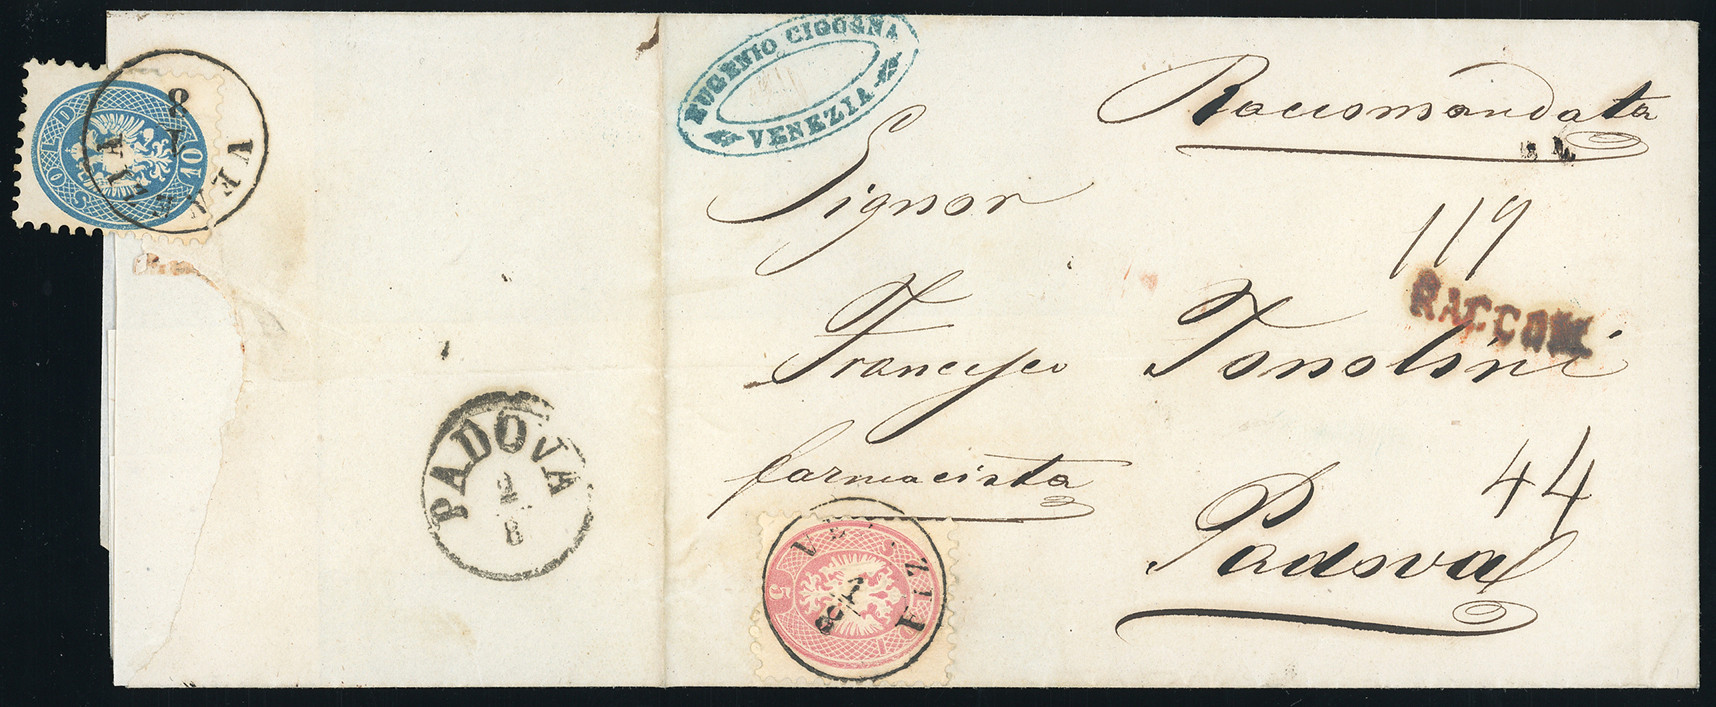 EUGENIO CICOGNA
VENEZIA
Raccomandata
Signor
119
RACCOM
Francesco Tonolini
farmacista
44
Padova
PADOVA
2
8
VENEZIA
1
8
5 SOLDI
VENEZIA
8
1
10 SOLDI